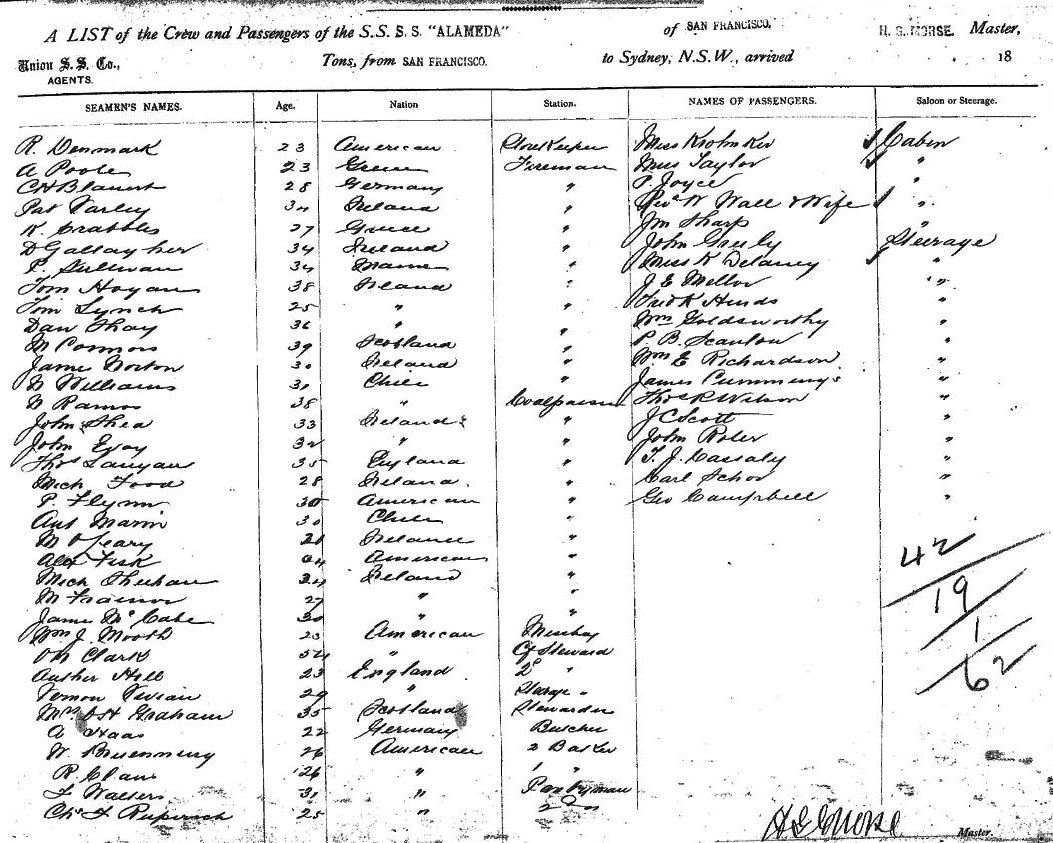 A LIST of the Crew and Passengers of the S.S. S. S. "ALAMEDA" of SAN FRANCISCO. H. G. MORSE. Master,
Union S. S. Co., Tons, from SAN FRANCISCO. to Sydney, N.S.W., arrived 18
AGENTS.
SEAMEN'S NAMES. Age. Nation Station. NAMES OF PASSENGERS. Saloon or Steerage.
R. Denmark 23 American Storekeeper Miss Cabin
A Poole 23 Greece Fireman Miss Taylor "
28 Germany " P. Joyce "
Pat Varley 34 Ireland " Revd W Wall & Wife "
K. Crabbles 27 Greece " Jn Sharp "
D Gallagher 34 Ireland " John Steerage
P. Sullivan 34 " Miss K Delaney "
Tom Hogan 38 Ireland " J E Mellor "
Tim Lynch 25 " " Fredk Hinds "
Dan Shay 36 " " Wm Goldsworthy "
M Connors 39 Scotland " P. B. Scanlon "
James Norton 30 Ireland " Wm E Richardson "
N Williams 31 Chile " James Cummings "
N Ramos 38 " Coalpasser Thos R Wilson "
John Shea 33 Ireland " J C Scott "
John 32 " " John "
Thos Lanyan 35 England " T. J. Cassaly "
Mich Food 28 Ireland " Carl Schor "
P Flynn 30 American " Geo Campbell "
Ant Marin 30 Chile "
M O'Leary 21 "
Alex Fisk American " 42
Mich Sheehan 24 Ireland " 19
M Trainor 27 " " 1
James McCabe 30 " " 62
Wm J. Mooth 23 American Messboy
Clark 52 " Cf Steward
Author Hill 23 England 2d "
Vernon Vivian 29 " Steerge "
Mrs Graham 35 Scotland Stewardess
A Haas 22 Germany Butcher
W 26 American 2 Baker
R. Clare 26 " 1 "
F Walters 31 " Pantryman
Chs F 25 " 2 "
H G Morse Master.